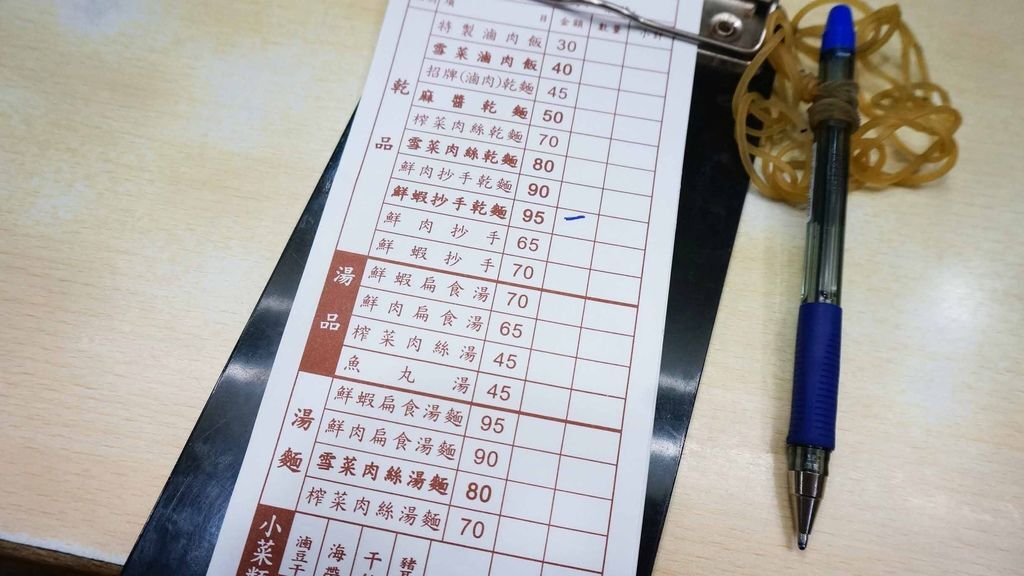 項 目 金額 數量 小計
乾品
特製滷肉飯 30
雪菜滷肉飯 40
招牌(滷肉)乾麵 45
麻醬乾麵 50
榨菜肉絲乾麵 70
雪菜肉絲乾麵 80
鮮肉抄手乾麵 90
鮮蝦抄手乾麵 95
鮮肉抄手 65
鮮蝦抄手 70
湯品
鮮蝦扁食湯 70
鮮肉扁食湯 65
榨菜肉絲湯 45
魚丸湯 45
湯麵
鮮蝦扁食湯麵 95
鮮肉扁食湯麵 90
雪菜肉絲湯麵 80
榨菜肉絲湯麵 70
小菜類
滷豆干
海帶
干
豬